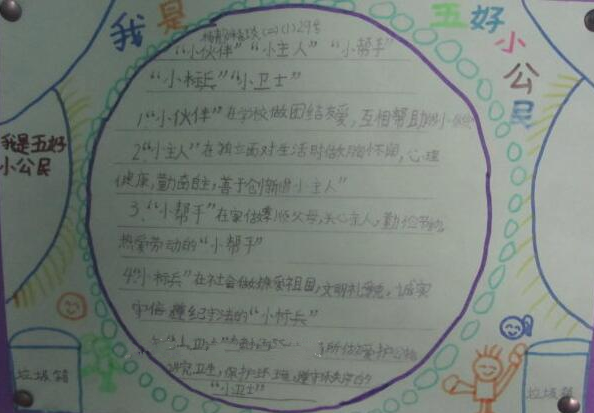 我是
五好
小公民
我是五好
小公民
“小伙伴”“小主人”“小帮手”
“小标兵”“小卫士”
1.“小伙伴”在学校做团结友爱，互相帮助的小伙伴
2.“小主人”在独立面对生活时做胸怀开阔，心理
健康，勤奋自主，善于创新的“小主人”
3.“小帮手”在家做孝顺父母，关心亲人，勤俭节约
热爱劳动的“小帮手”
4.“小标兵”在社会做热爱祖国，文明礼貌，诚实
守信 遵纪守法的“小标兵”
讲究卫生，保护环境，
“小卫士”
垃圾箱
垃圾箱